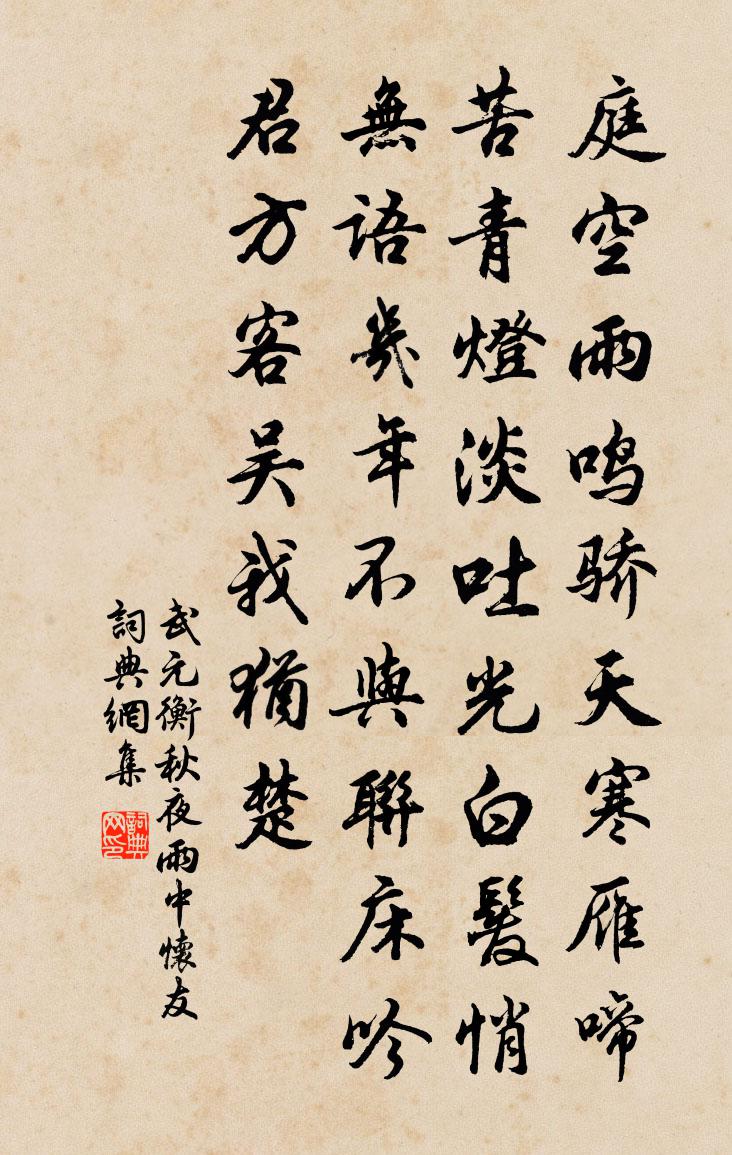 庭空雨鸣骄天寒雁啼
苦青燈淡吐光白髮悄
無語幾年不與聯床吟
君方客吴我猶楚
武元衡秋夜雨中懷友
詞典網集
詞典网印